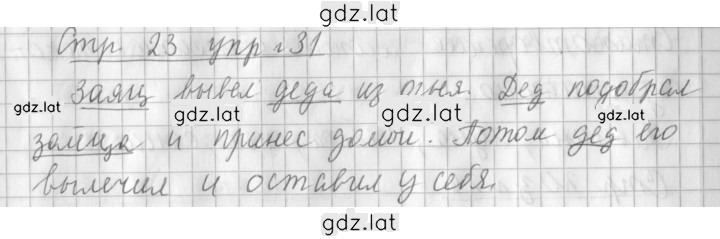 gdz.lat
Стр. 23 упр. 31
Заяц вывел деда из огня. Дед подобрал
gdz.lat gdz.lat gdz.lat
зайца и принес домой. Потом дед его
вылечил и оставил у себя.
gdz.lat